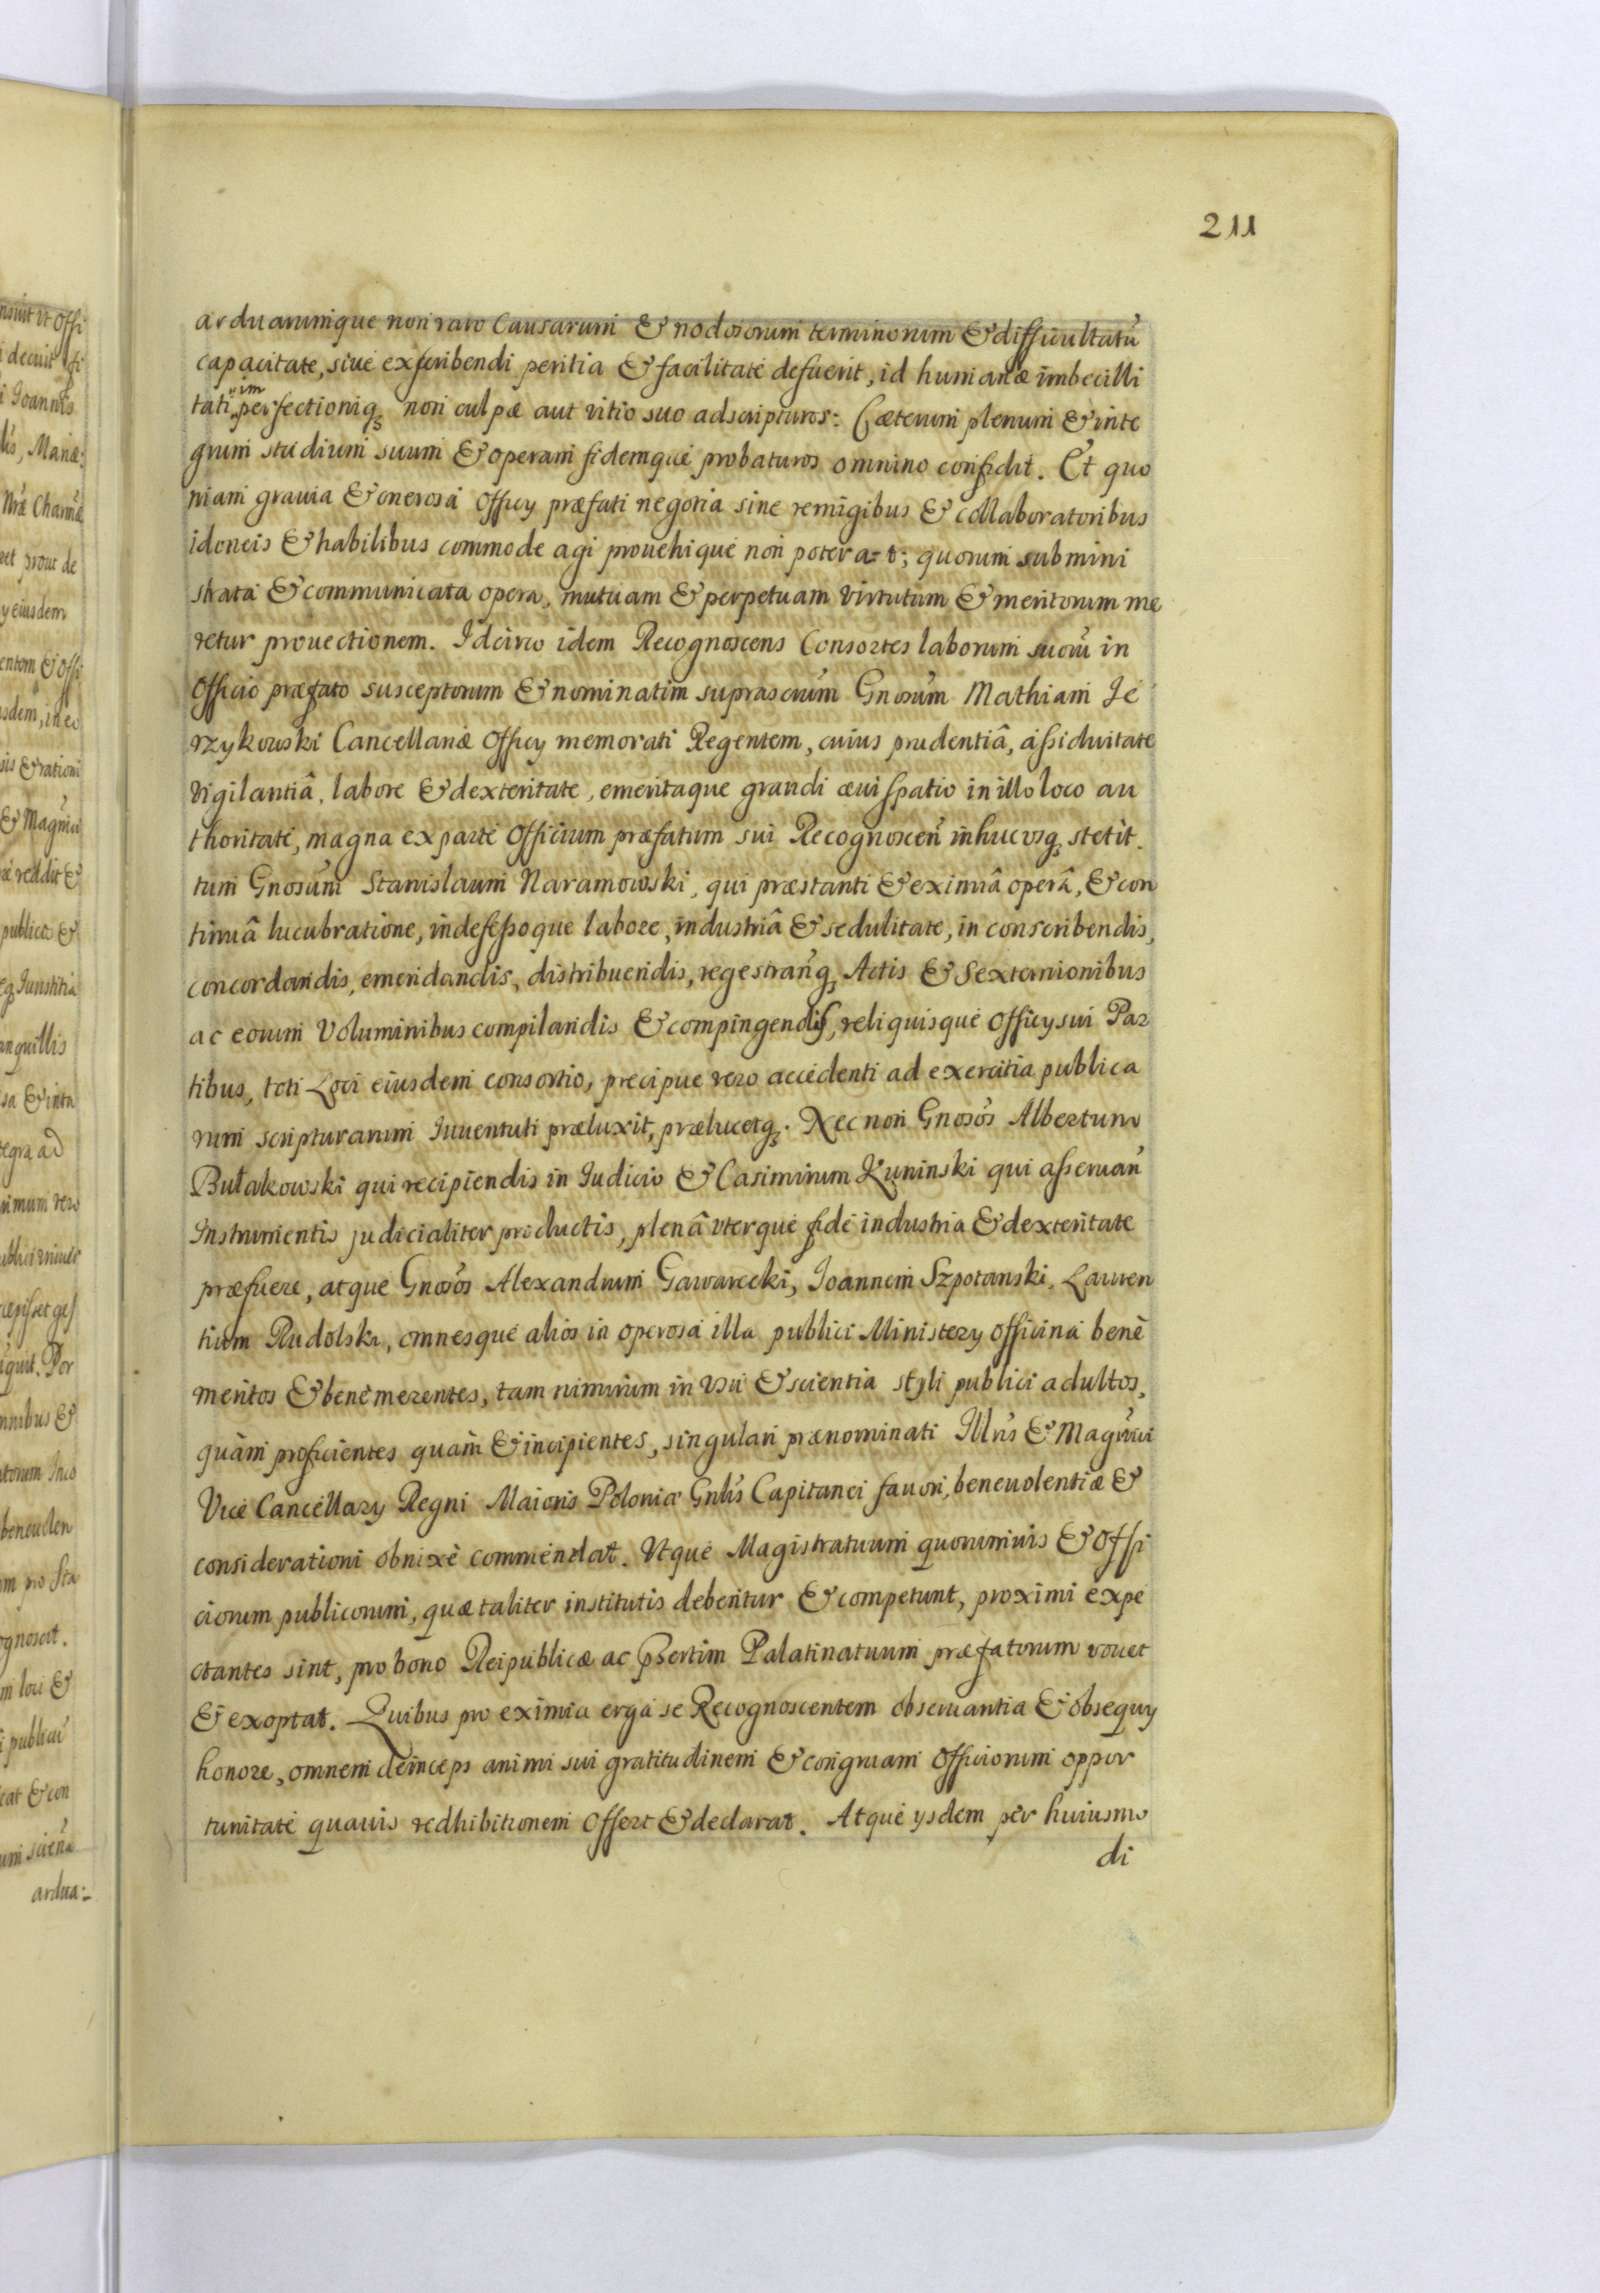 211
arduarumque non raro Causarum & nodosorum terminorum & difficultatũ
capacitate, siue exscribendi peritia & facilitate defuerit, id humanæ imbecilli
tati im perfectioniq₃ non culpæ aut vitio suo adscripturos: Cæterum plenum & inte
grum studium suum & operam fidemque probaturos omnino confidit. Et quo
niam grauia & onerosa Officy præfati negotia sine remigibus & collaboratoribus
idoneis & habilibus commode agi prouehique non poterat; quorum submini
strata & communicata opera, mutuam & perpetuam virtutum & meritorum me
retur prouectionem. Idcirco idem Recognoscens Consortes laborum suorũ in
Officio præfato susceptorum & nominatim suprascrũm Gnosũm Mathiam Je
rzykowski Cancellariæ Officy memorati Regentem, cuius prudentiâ, assiduitate
vigilantiâ, labore & dexteritate, emeritaque grandi æui spatio in illo loco au
thoritate, magna ex parte Officium præfatum sui Recognoscen̄ inhucusq₃ stetit.
tum Gnosũm Stanislaum Naramowski, qui præstanti & eximiâ operâ, & con
tinuâ lucubratione, indefessoque labore, industriâ & sedulitate, in conscribendis,
concordandis, emendandis, distribuendis, regestran̄q₃ Actis & Sexternionibus
ac eorum Voluminibus compilandis & compingendis, reliquisque Officy sui Par
tibus, toti Loci eiusdem consortio, precipue vero accedenti ad exercitia publica
rum scripturarum Iuuentuti præluxit, prælucetq₃. Nec non Gnosõs Albertum
Bułakowski qui recipiendis in Iudicio & Casimirum Kuninski qui asseruan̄
Instrumentis judicialiter productis, plenâ vterque fide industria & dexteritate
præfuere, atque Gnosõs Alexandrum Gawarecki, Joannem Szpotanski, Lauren
tium Rudolski, omnesque alios in operosa illa publici Ministery officina benè
meritos & benè merentes, tam nimirum in vsu & scientia styli publici adultos,
quàm proficientes quam & incipientes, singulari prænominati Illris & Magnifici
Vice Cancellary Regni Maioris Poloniæ Gnlis Capitanei fauori, beneuolentiæ &
considerationi obnixè commendat. Vtque Magistratuum quorumuis & Offi
ciorum publicorum, quæ taliter institutis debentur & competunt, proximi expe
ctantes sint, pro bono Reipublicæ ac psertim Palatinatuum præfatorum vouet
& exoptat. Quibus pro eximia erga se Recognoscentem obseruantia & obsequy
honore, omnem deinceps animi sui gratitudinem & congruam Officiorum oppor
tunitate quauis redhibitionem offert & declarat. Atque ysdem per huiusmo
di